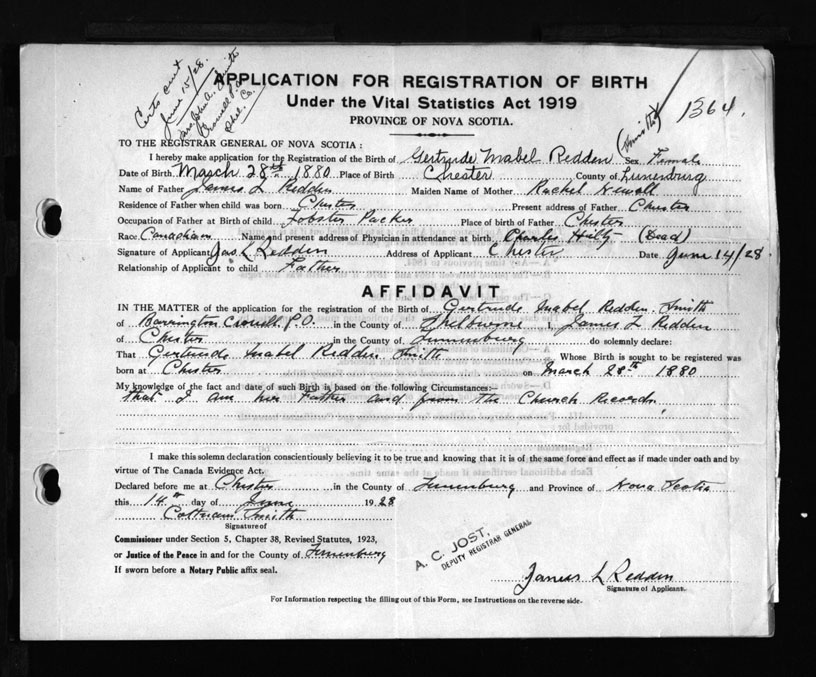 Certs sent
June 15/28.
APPLICATION FOR REGISTRATION OF BIRTH
Under the Vital Statistics Act 1919
PROVINCE OF NOVA SCOTIA.
1364.
TO THE REGISTRAR GENERAL OF NOVA SCOTIA :
(Smith)
I hereby make application for the Registration of the Birth of Gertrude Mabel Redden Sex Female
Date of Birth March 28th 1880 Place of Birth Chester County of Lunenburg
Name of Father James L Redden Maiden Name of Mother Rachel
Residence of Father when child was born Chester Present address of Father Chester
Occupation of Father at Birth of child Lobster Packer Place of birth of Father Chester
Race Canadian Name and present address of Physician in attendance at birth Charles (Dead)
Signature of Applicant Jas L Redden Address of Applicant Chester Date June 14/28.
Relationship of Applicant to child Father
AFFIDAVIT
IN THE MATTER of the application for the registration of the Birth of Gertrude Mabel Redden Smith
of Barrington Crowell P.O. in the County of Shelburne I, James L Redden
of Chester in the County of Lunenburg do solemnly declare:
That Gertrude Mabel Redden Smith Whose Birth is sought to be registered was
born at Chester on March 28th 1880
My knowledge of the fact and date of such Birth is based on the following Circumstances:—
that I am her Father and from the Church Records
I make this solemn declaration conscientiously believing it to be true and knowing that it is of the same force and effect as if made under oath and by
virtue of The Canada Evidence Act.
Declared before me at Chester in the County of Lunenburg and Province of Nova Scotia
this 14th day of June 1928
Cottnam Smith
Signature of
Commissioner under Section 5, Chapter 38, Revised Statutes, 1923,
or Justice of the Peace in and for the County of Lunenburg
If sworn before a Notary Public affix seal.
A. C. JOST,
DEPUTY REGISTRAR GENERAL
James L Redden
Signature of Applicant.
For Information respecting the filling out of this Form, see Instructions on the reverse side.